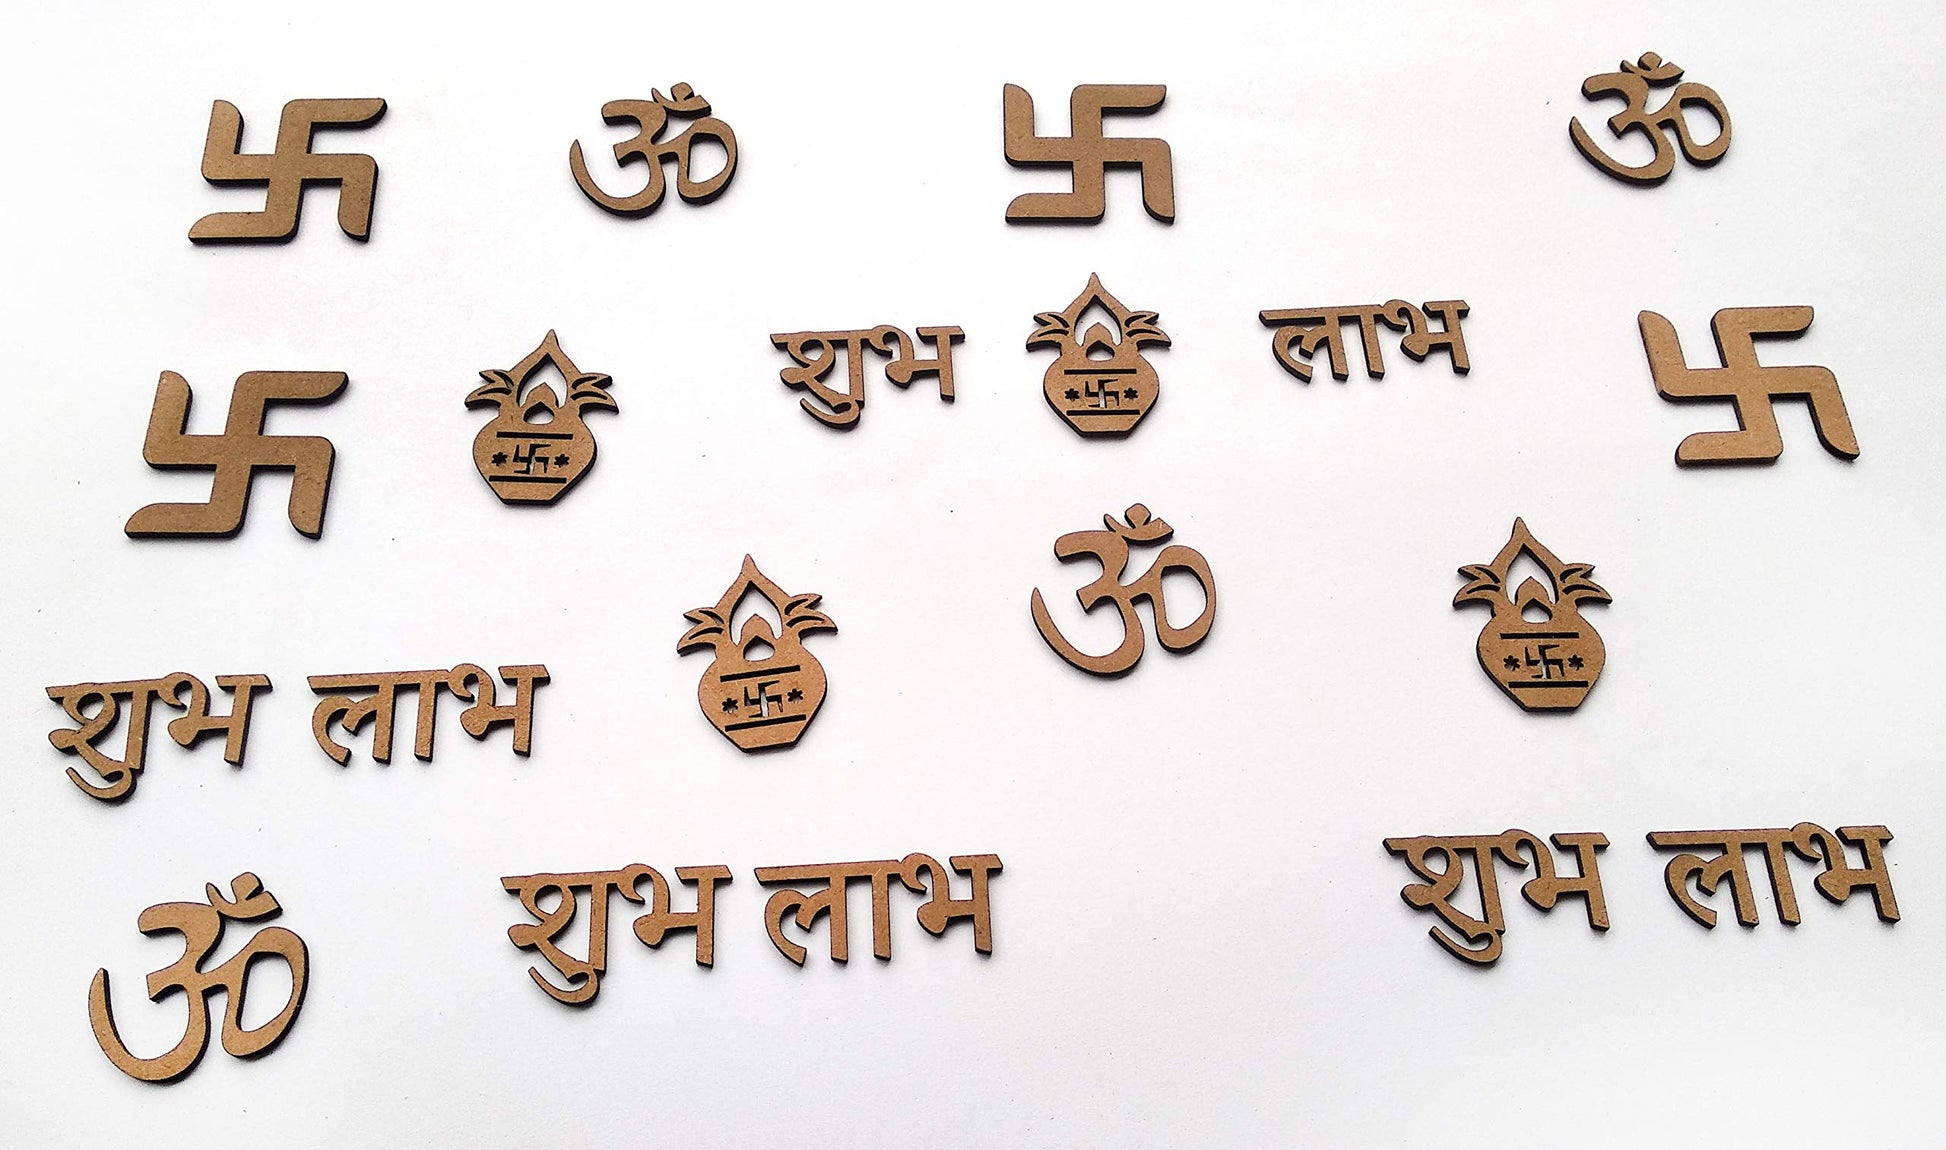 ॐ ॐ
शुभ लाभ
ॐ
शुभ लाभ
ॐ
शुभ लाभ
शुभ लाभ